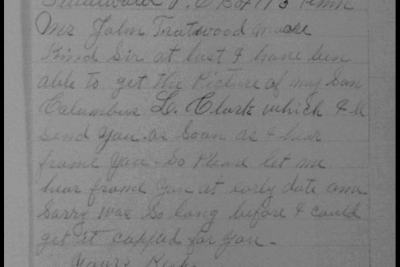 Sweetwater P.O. Box 173 Tenn
Mr John Trotwood Moore
Kind Sir at last I have ben
able to get the Picture of my Son
Columbus L. Clark which I ll
send you as soon as I hear
frome you - So Please let me
hear frome you at early date am
Sorry was so long before I could
get it coppied for you -
Yours Resp